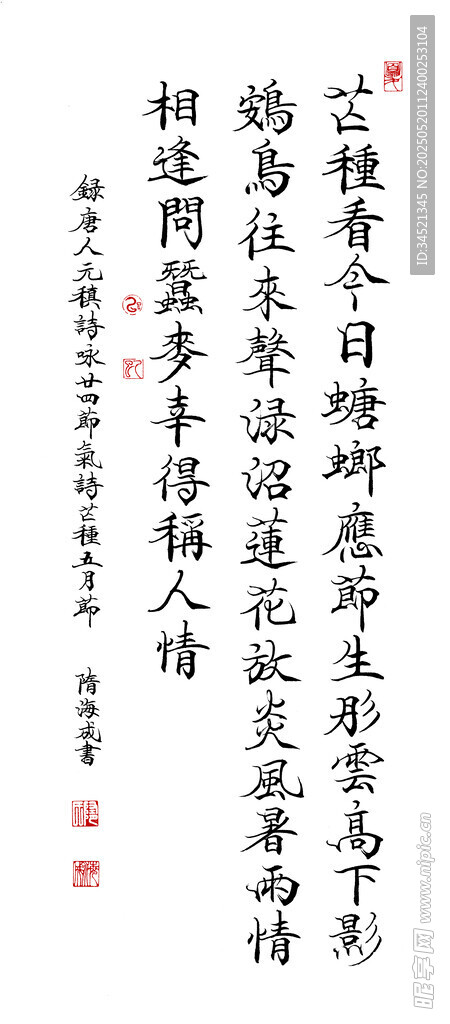 芒種看今日螗螂應節生彤雲高下影
鴳鳥往來聲渌沼蓮花放炎風暑雨情
相逢問蠶麥幸得稱人情
録唐人元稹詩咏廿四節氣詩芒種五月節 隋海成書
ID:34521345 NO:20250520112400253104
昵享网 www.nipic.cn